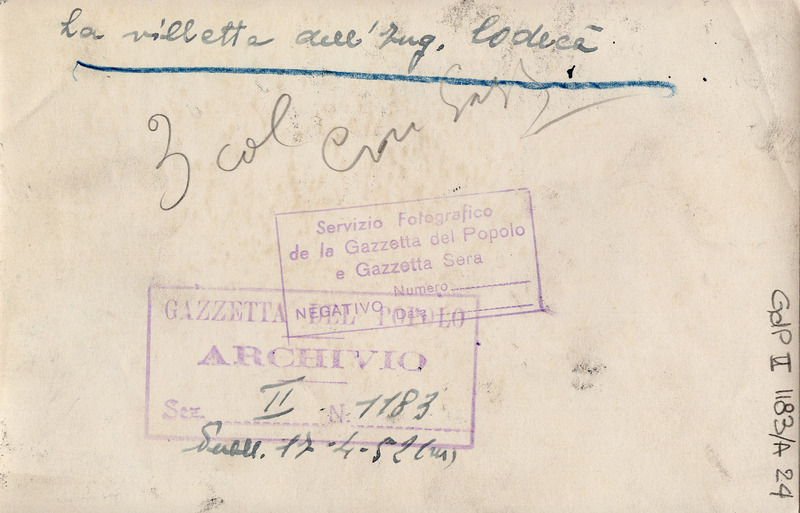 La villetta dell'Ing. Codecà
3 col
Servizio Fotografico
de la Gazzetta del Popolo
e Gazzetta Sera
Numero
NEGATIVO Data
GAZZETTA DEL POPOLO
ARCHIVIO
Sez. II N. 1183
17-4-52
GdP II 1183/A 24